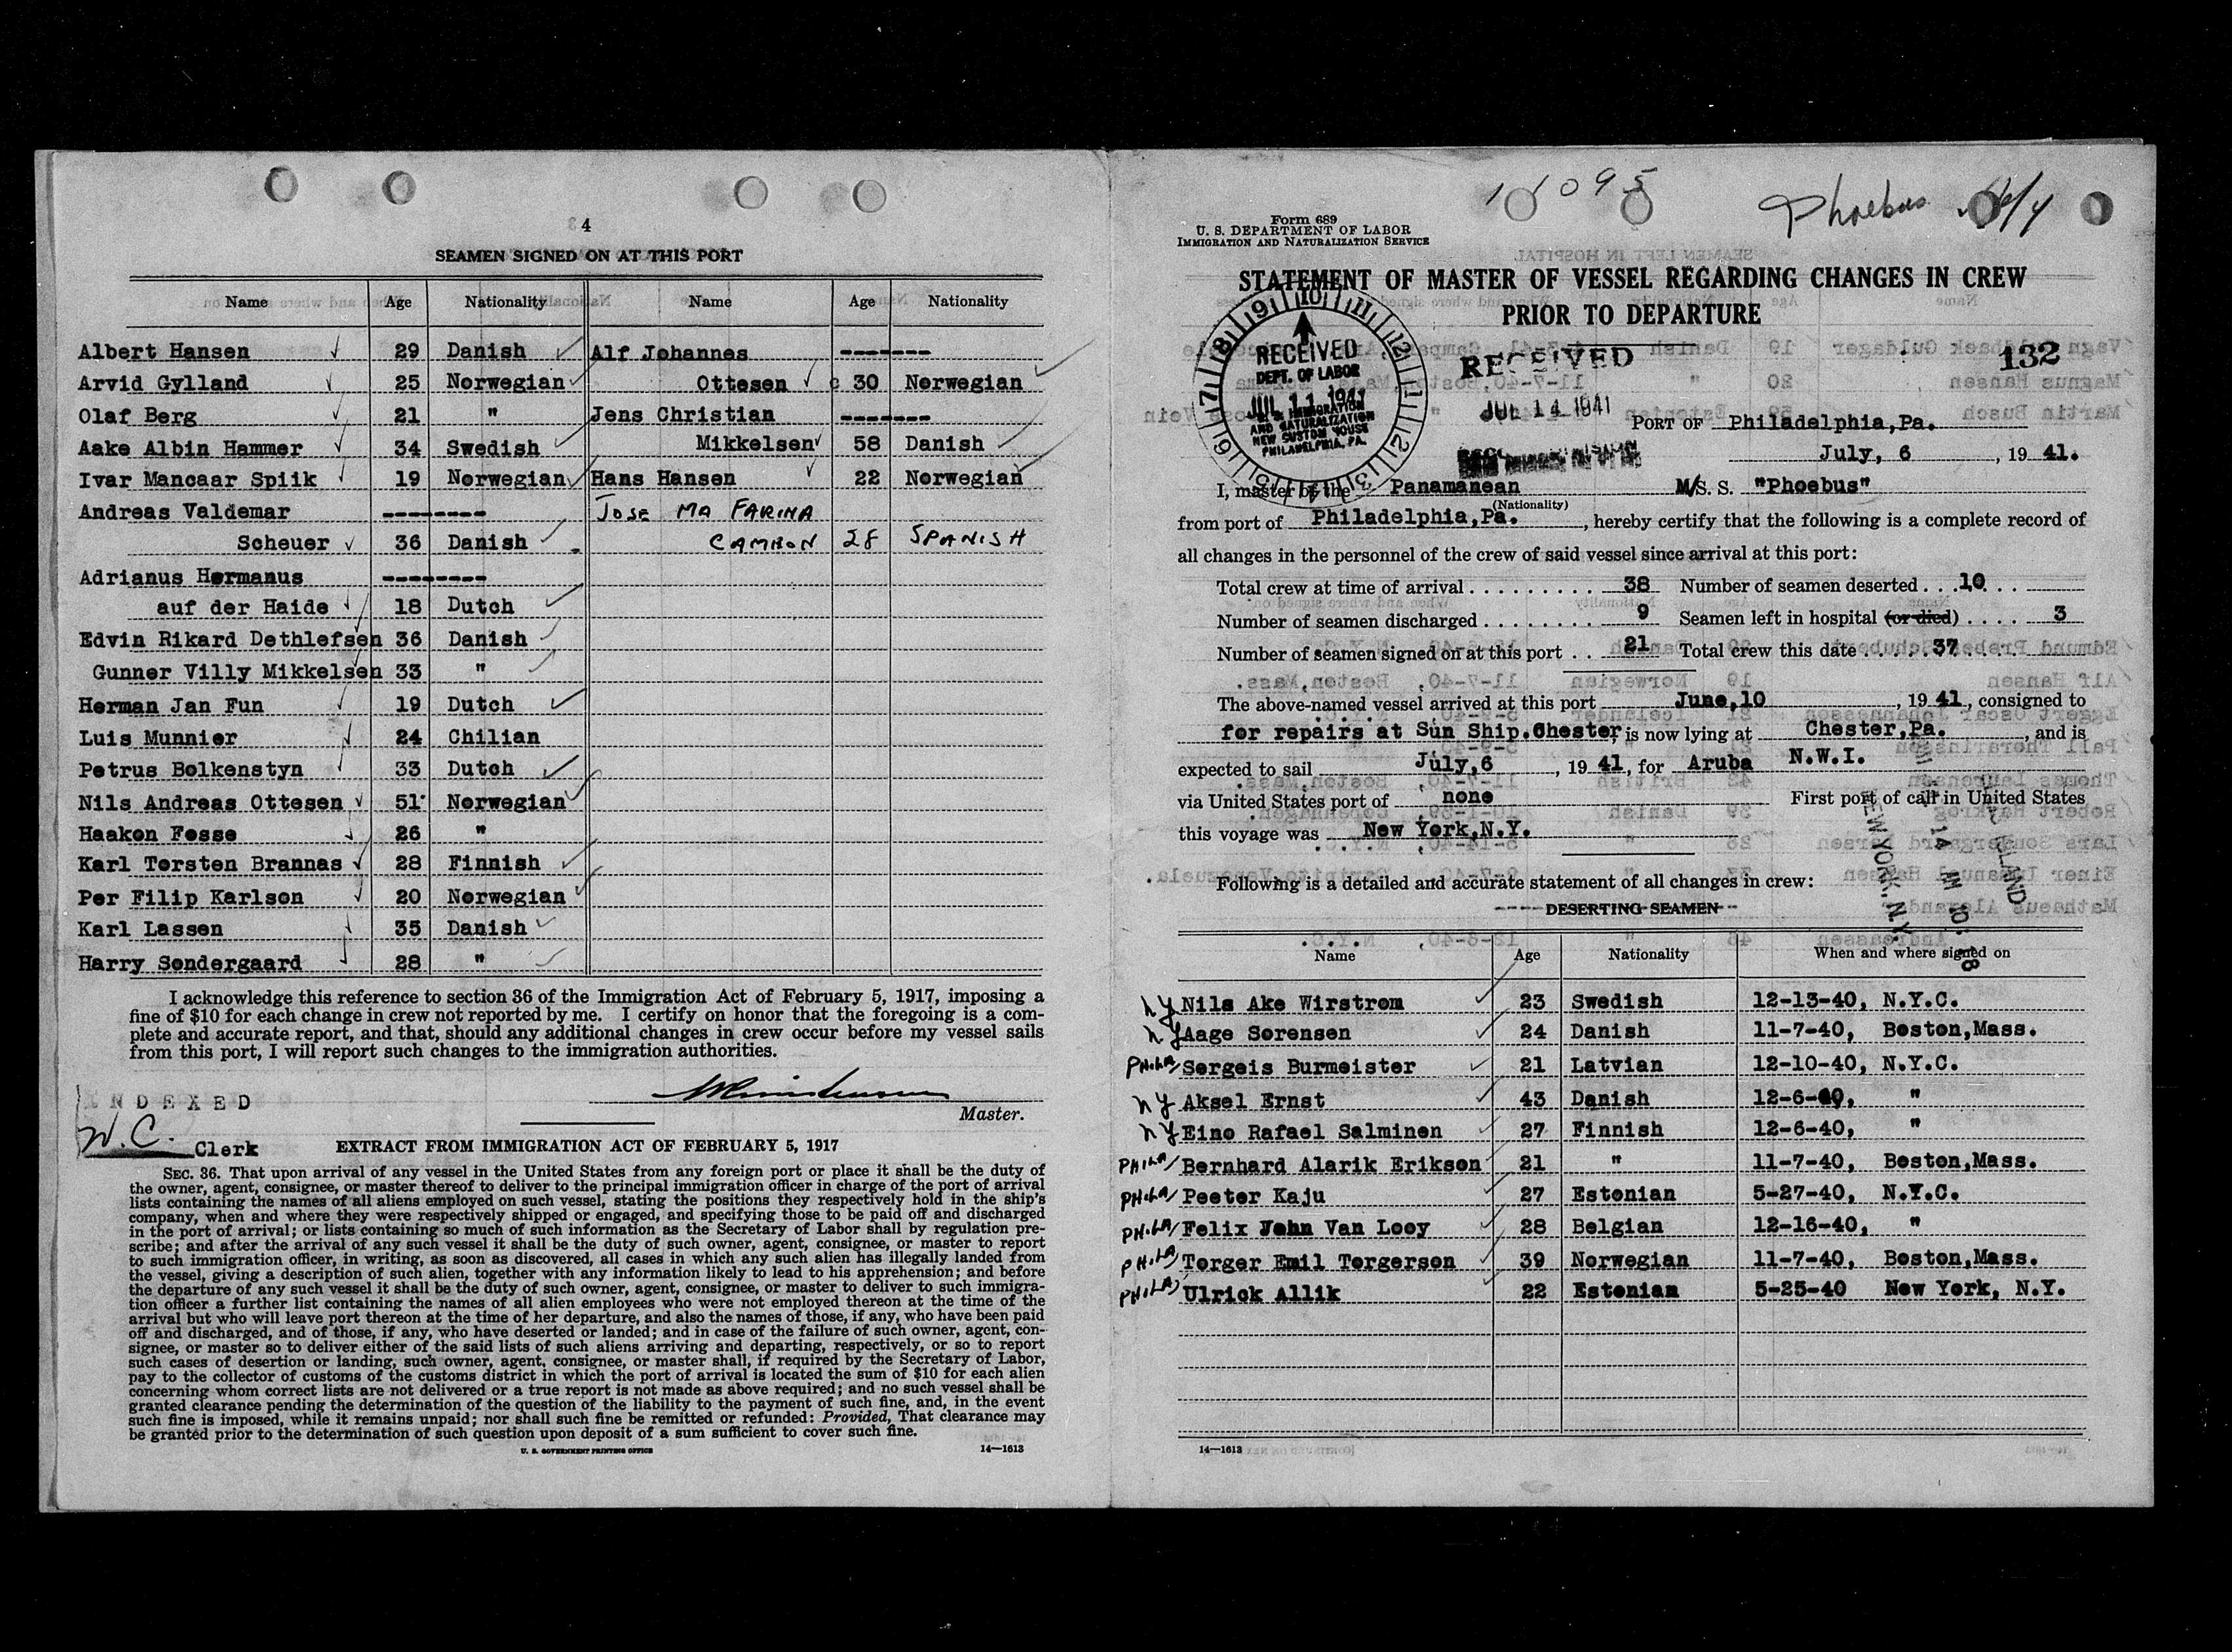 4
SEAMEN SIGNED ON AT THIS PORT
Name Age Nationality Name Age Nationality
Albert Hansen 29 Danish Alf Johannes -------
Arvid Gylland 25 Norwegian Ottesen 30 Norwegian
Olaf Berg 21 " Jens Christian -------
Aake Albin Hammer 34 Swedish Mikkelsen 58 Danish
Ivar Mancaar Spiik 19 Norwegian Hans Hansen 22 Norwegian
Andreas Valdemar -------- JOSE MA FARINA
Scheuer 36 Danish 28 SPANISH
Adrianus Hermanus --------
auf der Haide 18 Dutch
Edvin Rikard Dethlefsen 36 Danish
Gunner Villy Mikkelsen 33 "
Herman Jan Fun 19 Dutch
Luis Munnier 24 Chilian
Petrus Bolkenstyn 33 Dutch
Nils Andreas Ottesen 51 Norwegian
Haakon Fosse 26 "
Karl Torsten Brannas 28 Finnish
Per Filip Karlson 20 Norwegian
Karl Lassen 35 Danish
Harry Sondergaard 28 "
I acknowledge this reference to section 36 of the Immigration Act of February 5, 1917, imposing a
fine of $10 for each change in crew not reported by me. I certify on honor that the foregoing is a com-
plete and accurate report, and that, should any additional changes in crew occur before my vessel sails
from this port, I will report such changes to the immigration authorities.
Master.
INDEXED
W.C. Clerk
EXTRACT FROM IMMIGRATION ACT OF FEBRUARY 5, 1917
SEC. 36. That upon arrival of any vessel in the United States from any foreign port or place it shall be the duty of
the owner, agent, consignee, or master thereof to deliver to the principal immigration officer in charge of the port of arrival
lists containing the names of all aliens employed on such vessel, stating the positions they respectively hold in the ship's
company, when and where they were respectively shipped or engaged, and specifying those to be paid off and discharged
in the port of arrival; or lists containing so much of such information as the Secretary of Labor shall by regulation pre-
scribe; and after the arrival of any such vessel it shall be the duty of such owner, agent, consignee, or master to report
to such immigration officer, in writing, as soon as discovered, all cases in which any such alien has illegally landed from
the vessel, giving a description of such alien, together with any information likely to lead to his apprehension; and before
the departure of any such vessel it shall be the duty of such owner, agent, consignee, or master to deliver to such immigra-
tion officer a further list containing the names of all alien employees who were not employed thereon at the time of the
arrival but who will leave port thereon at the time of her departure, and also the names of those, if any, who have been paid
off and discharged, and of those, if any, who have deserted or landed; and in case of the failure of such owner, agent, con-
signee, or master so to deliver either of the said lists of such aliens arriving and departing, respectively, or so to report
such cases of desertion or landing, such owner, agent, consignee, or master shall, if required by the Secretary of Labor,
pay to the collector of customs of the customs district in which the port of arrival is located the sum of $10 for each alien
concerning whom correct lists are not delivered or a true report is not made as above required; and no such vessel shall be
granted clearance pending the determination of the question of the liability to the payment of such fine, and, in the event
such fine is imposed, while it remains unpaid; nor shall such fine be remitted or refunded: Provided, That clearance may
be granted prior to the determination of such question upon deposit of a sum sufficient to cover such fine.
U. S. GOVERNMENT PRINTING OFFICE 14—1613
11095 Phoebus
Form 689
U. S. DEPARTMENT OF LABOR
IMMIGRATION AND NATURALIZATION SERVICE
STATEMENT OF MASTER OF VESSEL REGARDING CHANGES IN CREW
PRIOR TO DEPARTURE
RECEIVED
DEPT. OF LABOR
JUL 11 1941
U.S. IMMIGRATION
AND NATURALIZATION
NEW CUSTOM HOUSE
PHILADELPHIA, PA.
RECEIVED
JUL 14 1941
132
PORT OF Philadelphia, Pa.
July, 6, 19 41.
I, master of the Panamanean M/S. S. "Phoebus"
(Nationality)
from port of Philadelphia, Pa., hereby certify that the following is a complete record of
all changes in the personnel of the crew of said vessel since arrival at this port:
Total crew at time of arrival . . . . . . . . . . 38 Number of seamen deserted . . . 10 . . .
Number of seamen discharged . . . . . . . . 9 Seamen left in hospital (or died) . . . . 3
Number of seamen signed on at this port . . 21 Total crew this date . . . . . 37
The above-named vessel arrived at this port June, 10, 19 41, consigned to
for repairs at Sun Ship. Chester, is now lying at Chester, Pa., and is
expected to sail July, 6, 19 41, for Aruba N.W.I.
via United States port of none First port of call in United States
this voyage was New York, N.Y.
Following is a detailed and accurate statement of all changes in crew:
DESERTING SEAMEN
Name Age Nationality When and where signed on
NY Nils Ake Wirstrom 23 Swedish 12-13-40, N.Y.C.
NY Aage Sorensen 24 Danish 11-7-40, Boston, Mass.
PHILA/ Sergeis Burmeister 21 Latvian 12-10-40, N.Y.C.
NY Aksel Ernst 43 Danish 12-6-40, "
NY Eino Rafael Salminen 27 Finnish 12-6-40, "
PHILA/ Bernhard Alarik Erikson 21 " 11-7-40, Boston, Mass.
PHILA/ Peeter Kaju 27 Estonian 5-27-40, N.Y.C.
PHILA/ Felix John Van Looy 28 Belgian 12-16-40, "
PHILA/ Torger Emil Torgerson 39 Norwegian 11-7-40, Boston, Mass.
PHILA/ Ulrick Allik 22 Estonian 5-25-40 New York, N.Y.
14—1613